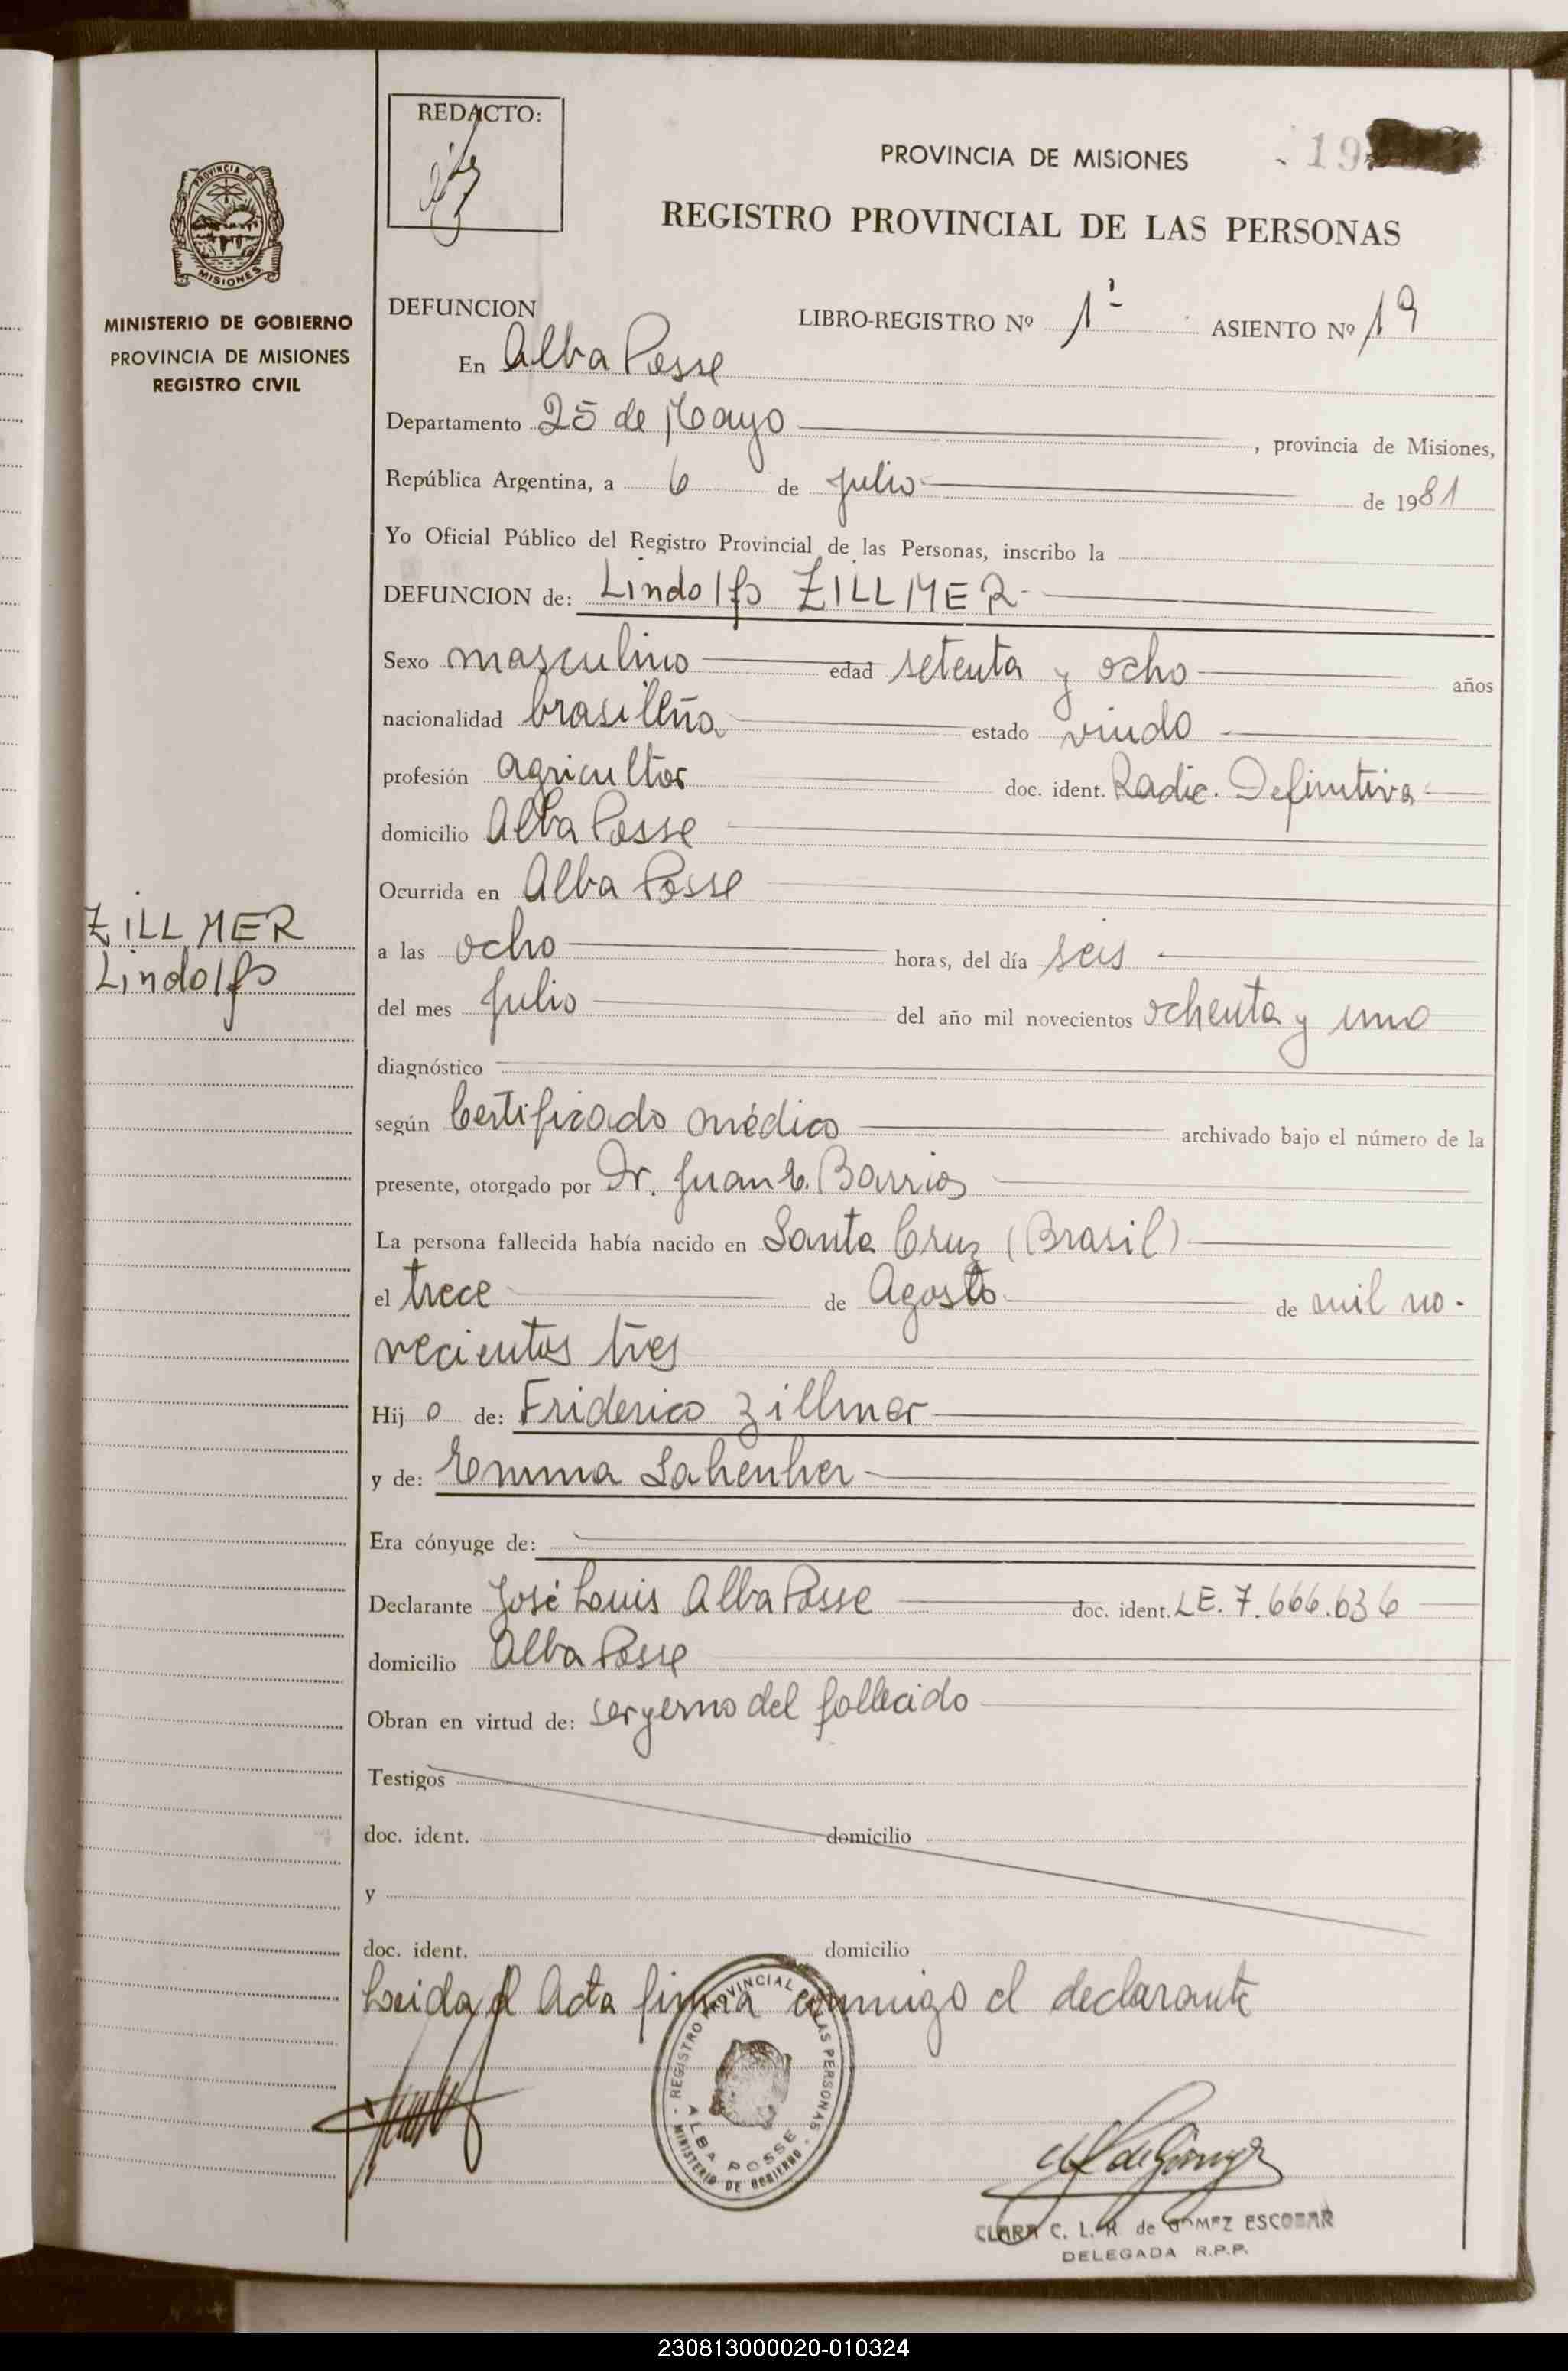 REDACTO:
PROVINCIA DE MISIONES
19
REGISTRO PROVINCIAL DE LAS PERSONAS
PROVINCIA DE
MISIONES
MINISTERIO DE GOBIERNO
PROVINCIA DE MISIONES
REGISTRO CIVIL
DEFUNCION
LIBRO-REGISTRO Nº 1º ASIENTO Nº 19
En Alba Posse
Departamento 25 de Mayo, provincia de Misiones,
República Argentina, a 6 de Julio de 1981
Yo Oficial Público del Registro Provincial de las Personas, inscribo la
DEFUNCION de: Lindolfo ZILLMER
Sexo masculino edad setenta y ocho años
nacionalidad brasileña estado viudo
profesión agricultor doc. ident. Radic. Definitiva
domicilio Alba Posse
Ocurrida en Alba Posse
ZILLMER
Lindolfo
a las ocho horas, del día seis
del mes Julio del año mil novecientos ochenta y uno
diagnóstico
según Certificado médico archivado bajo el número de la
presente, otorgado por Dr. Juan E. Barrios
La persona fallecida había nacido en Santa Cruz (Brasil)
el trece de Agosto de mil no-
vecientos tres
Hijo de: Friderico Zillmer
y de: Emma
Era cónyuge de:
Declarante José Luis Alba Posse doc. ident. LE. 7.666.636
domicilio Alba Posse
Obran en virtud de: ser yerno del fallecido
Testigos
doc. ident. domicilio
y
doc. ident. domicilio
Leida el Acta firma conmigo el declarante
REGISTRO PROVINCIAL DE LAS PERSONAS
ALBA POSSE
MINISTERIO DE GOBIERNO
CLARA C. L. R. de GOMEZ ESCOBAR
DELEGADA R.P.P.
230813000020-010324